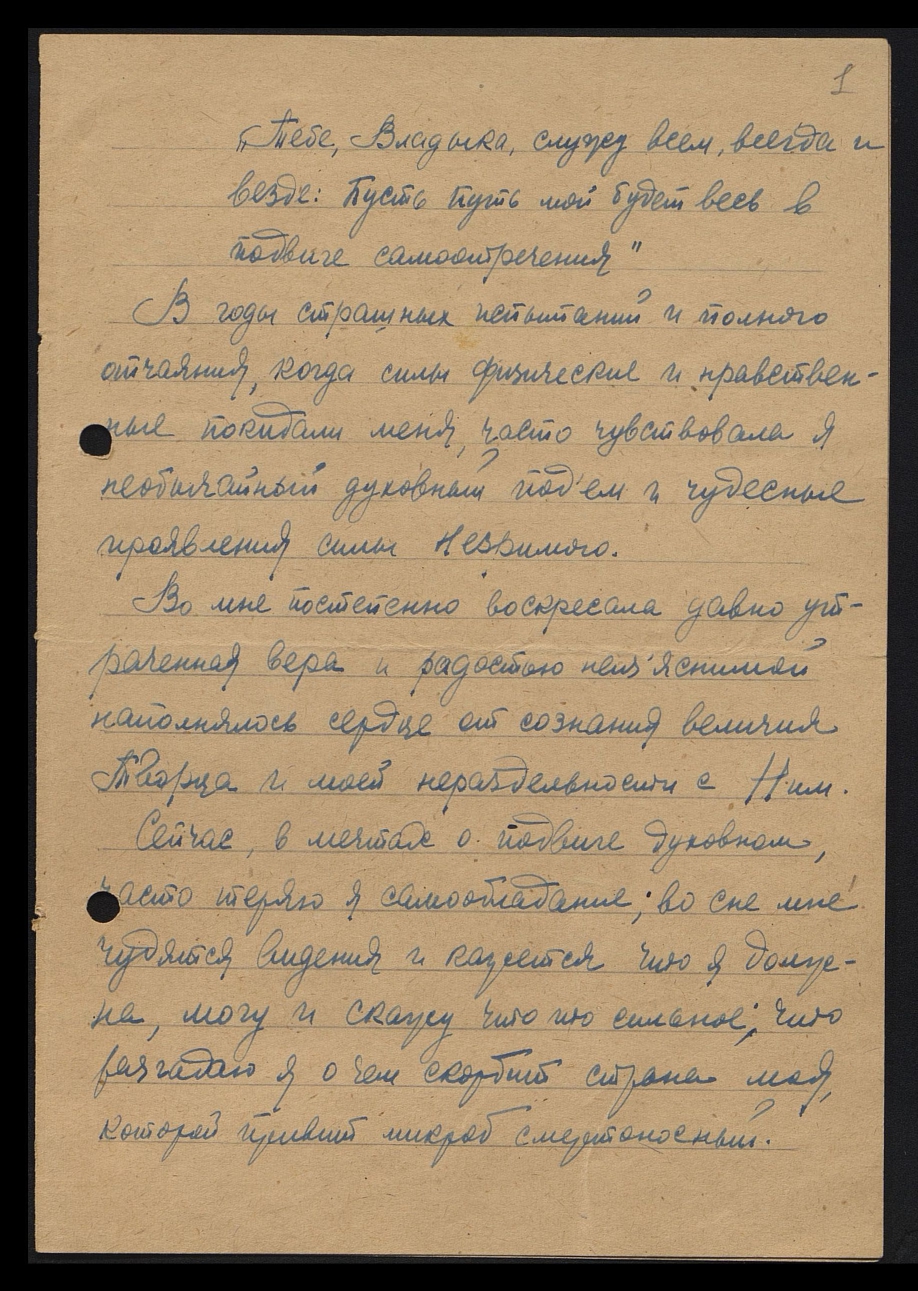 1
„Тебе, Владыка, служу всем, всегда и
везде: Пусть путь мой будет весь в
подвиге самоотречения"
В годы страшных испытаний и полного
отчаяния, когда силы физические и нравствен-
ные покидали меня, часто чувствовала я
необычайный духовный под'ем и чудесные
проявления силы Незримого.
Во мне постепенно воскресала давно ут-
раченная вера и радостью неиз'яснимой
наполнялось сердце от сознания величия
Творца и моей нераздельности с Ним.
Сейчас, в мечтах о подвиге духовном,
часто теряю я самообладание; во сне мне
чудятся видения и кажется что я долж-
на, могу и скажу что то сильное; что
разгадаю я о чем скорбит страна моя,
которой привит микроб смертоносный.